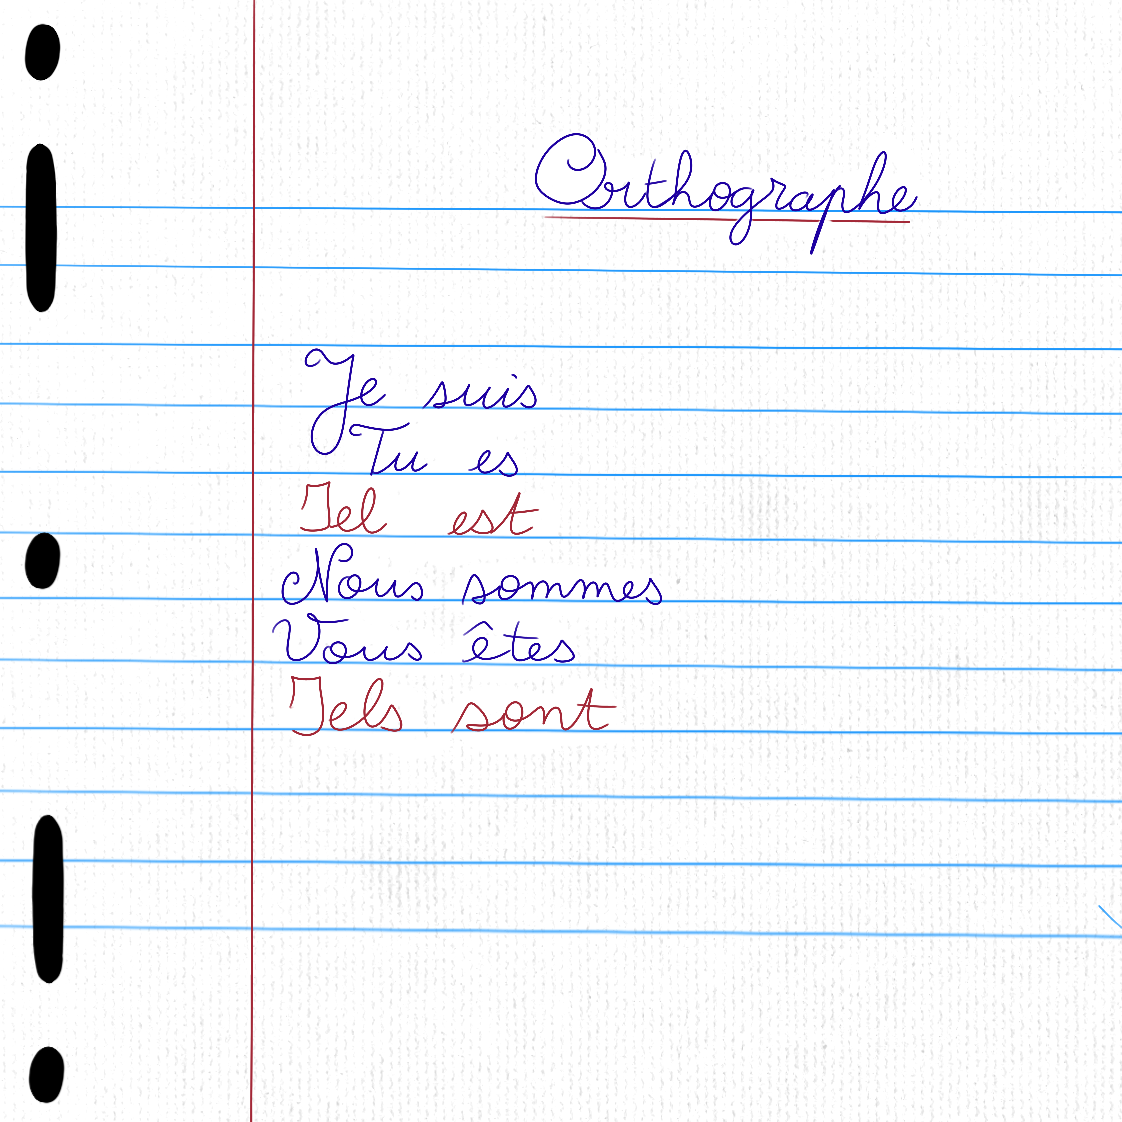 Orthographe
Je suis
Tu es
Iel est
Nous sommes
Vous êtes
Iels sont